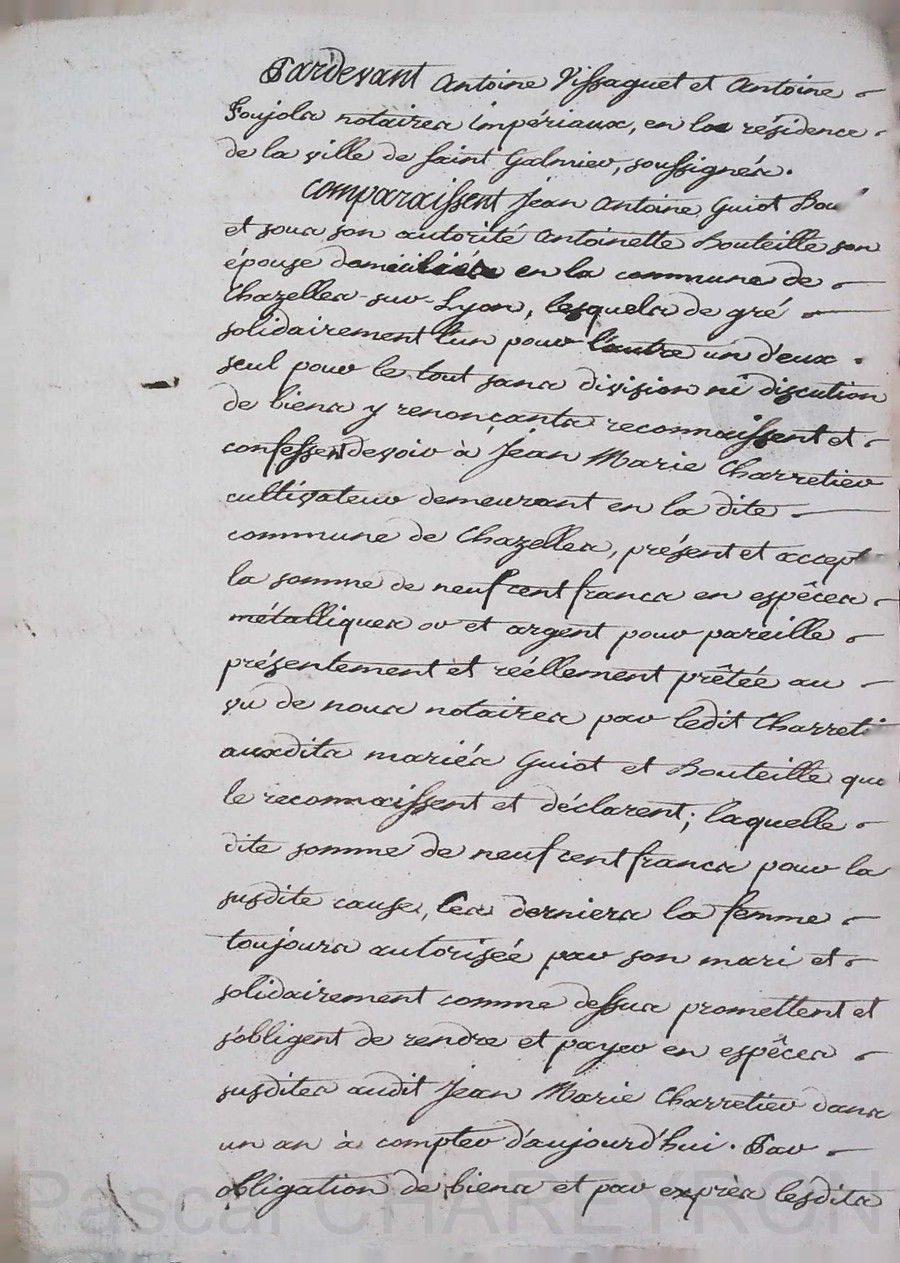 Pardevant Antoine Vissaguet et Antoine
Soujols notaires impériaux, en la résidence
de la ville de saint Galmier, soussignés.
Comparaissent Jean Antoine Guiot
et sous son autorité Antoinette Bouteille son
épouse domiciliés en la commune de
Chazelles-sur-Lyon, lesquels de gré
solidairement l'un pour l'autre un d'eux
seul pour le tout sans division ni discution
de biens y renonçants reconnaissent et
confessent devoir à Jean Marie Charretier
cultivateur demeurant en la dite
commune de Chazelles, présent et accept
la somme de neuf cent francs en espêces
métalliques or et argent pour pareille
présentement et réellement prêtée au
vu de nous notaires par ledit Charreti
auxdits mariés Guiot et Bouteille que
le reconnaissent et déclarent; laquelle
dite somme de neuf cent francs pour la
susdite cause, les derniers la femme
toujours autorisée par son mari et
solidairement comme dessus promettent et
s'obligent de rendre et payer en espêces
susdites audit Jean Marie Charretier dans
un an à compter d'aujourd'hui. Par
obligation de biens et par exprès lesdits
Pascal CHAREYRON